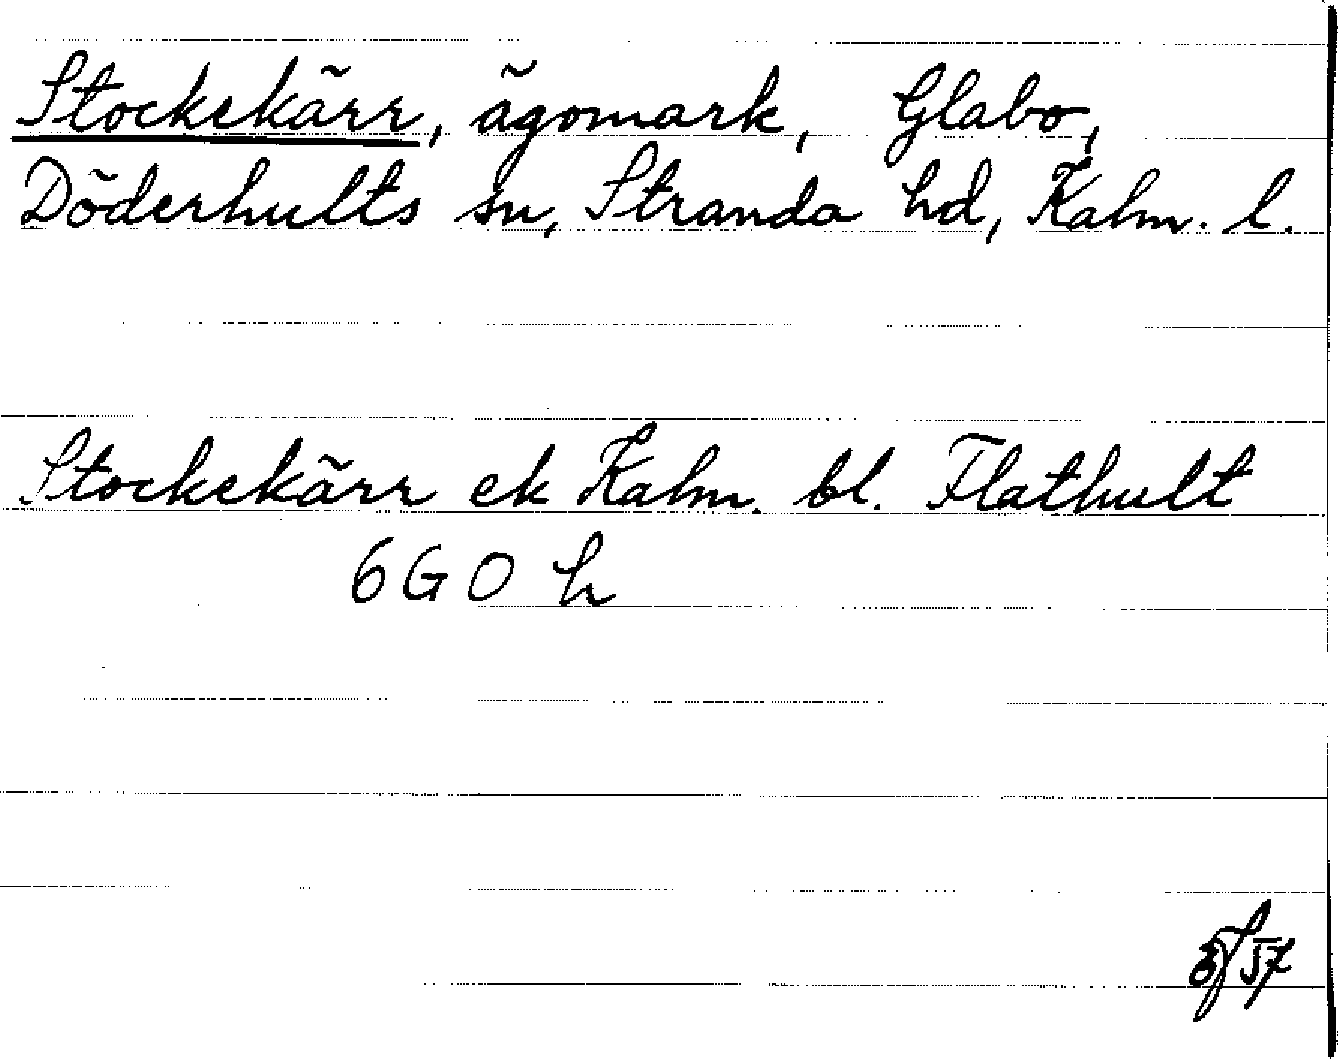 Stockekärr, ägomark, Glabo,
Döderhults sn, Stranda hd, Kalm. l.
Stockekärr ek Kalm. bl. Flathult
6 G O h